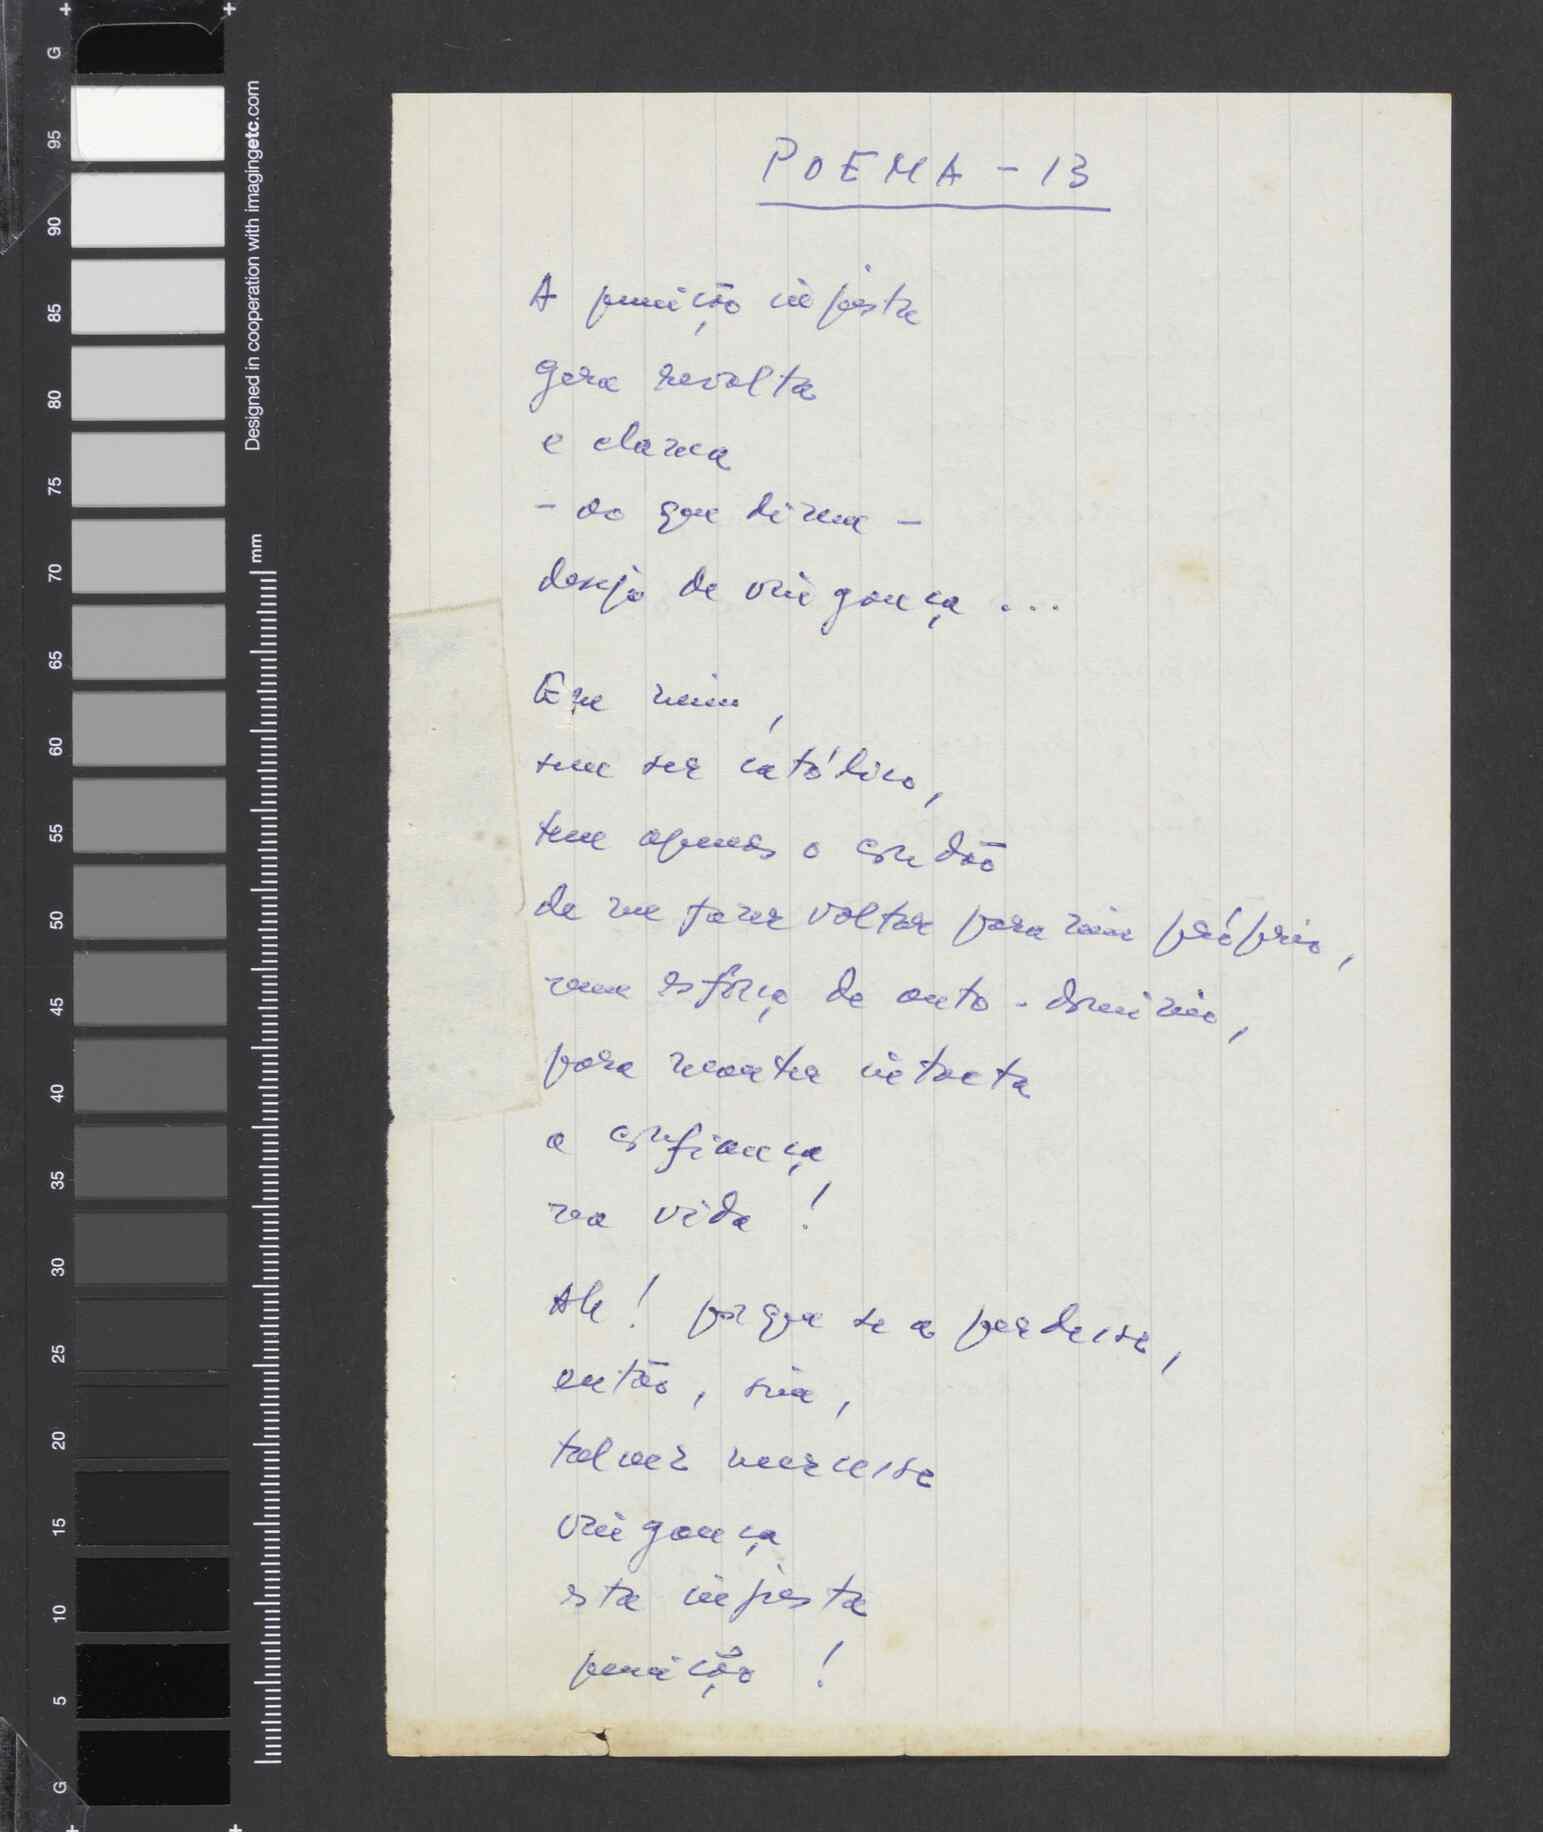 POEMA - 13
A punição injusta
gera revolta
e clama
- ao que dizem -
desejo de vingança ...
Em mim,
sem ser católico,
tem apenas o condão
de me fazer voltar para mim próprio,
num esforço de auto-domínio,
para manter intacta
a confiança
na vida!
Ah! porque se a perdesse,
então, sim,
talvez merecesse
vingança
esta injusta
punição!
G
95
90
85
80
75
70
65
60
55
50
45
40
35
30
25
20
15
10
5
G
Designed in cooperation with imagingetc.com
mm